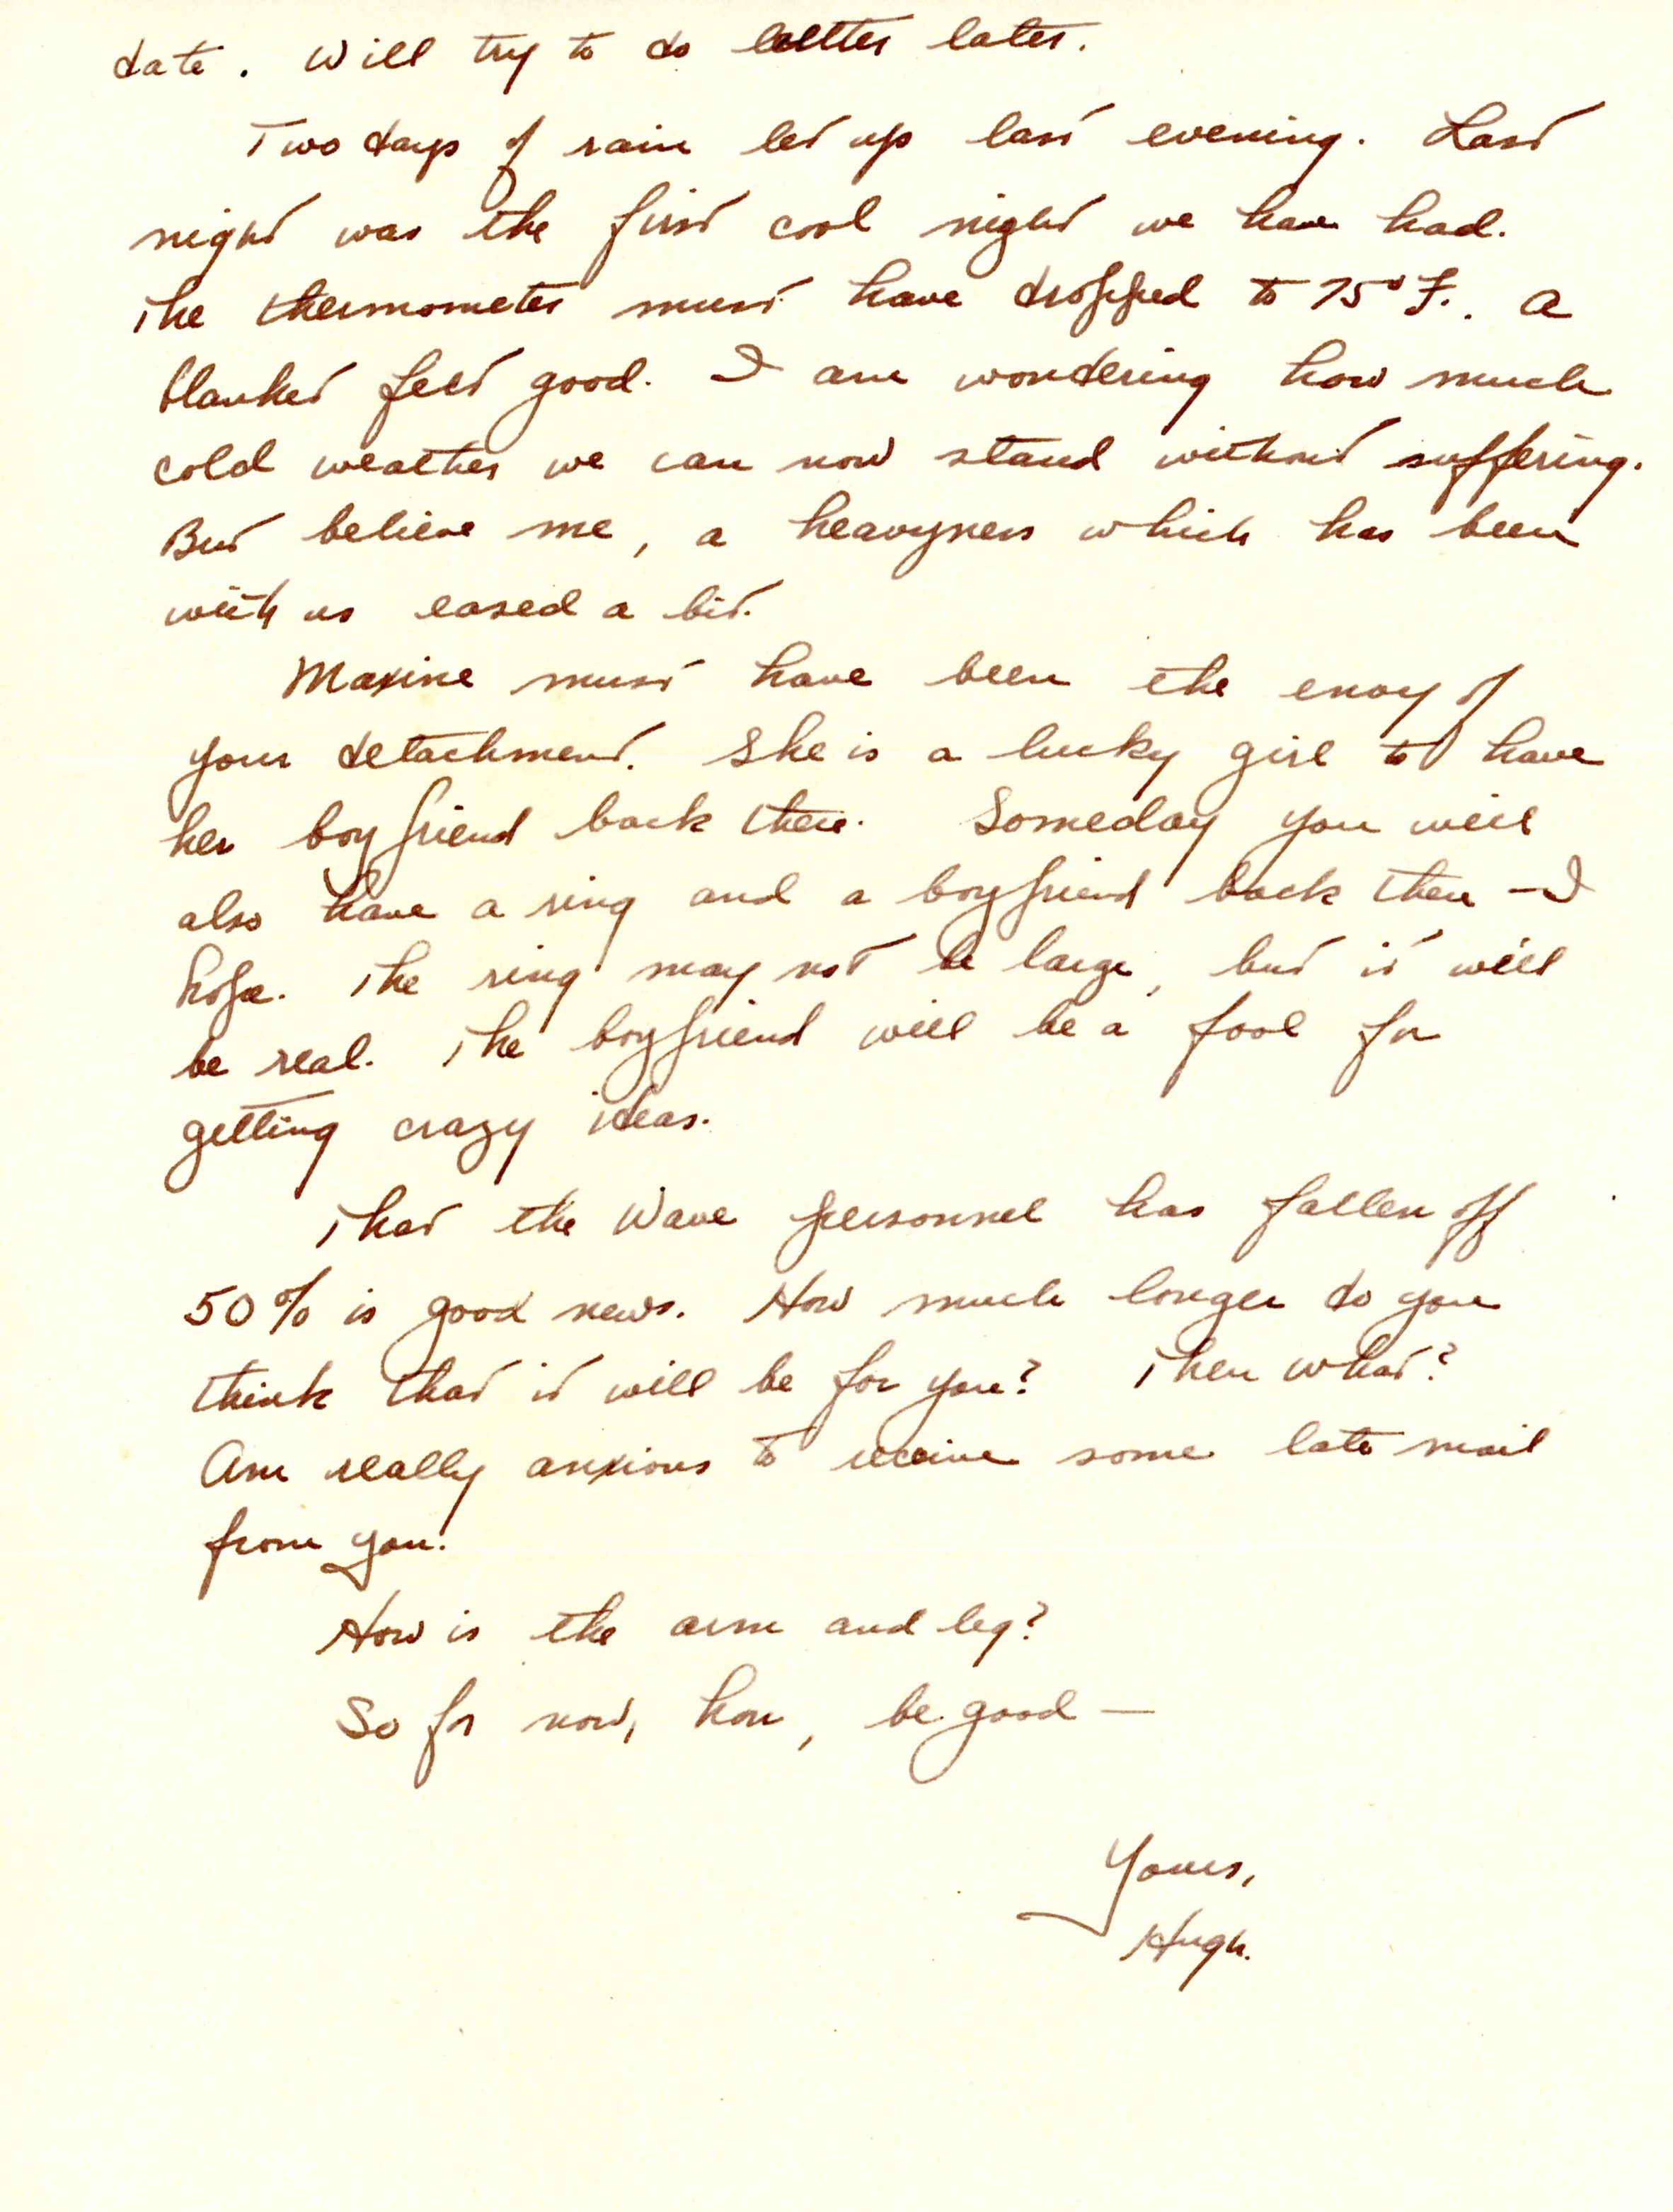 date. Will try to do better later.
Two days of rain let up last evening. Last
night was the first cool night we have had.
The thermometer must have dropped to 75° F. A
blanket felt good. I am wondering how much
cold weather we can now stand without suffering.
But believe me, a heavyness which has been
with us eased a bit.
Maxine must have been the envy of
your detachment. She is a lucky girl to have
her boyfriend back there. Someday you will
also have a ring and a boyfriend back there - I
hope. The ring may not be large, but it will
be real. The boyfriend will be a fool for
getting crazy ideas.
That the Wave personnel has fallen off
50% is good news. How much longer do you
think that it will be for you? Then what?
Am really anxious to receive some late mail
from you.
How is the arm and leg?
So for now, hon, be good —
Yours,
Hugh.